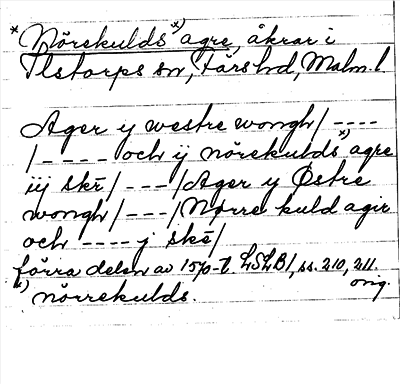 * Nörskulds x) agre, åkrar i
Ilstorps sn, Färs hd, Malm. l.
Ager y westre wongh / ----
/ - - - - och ij nörekulds x) agre
iij skr̄ / - - - / Ager y Østre
wongh / - - - / Nørre kuld agir
och ---- j skē /
förra delen av 1570-t. LSLB1, ss. 210, 211.
orig.
x) nörrekulds.